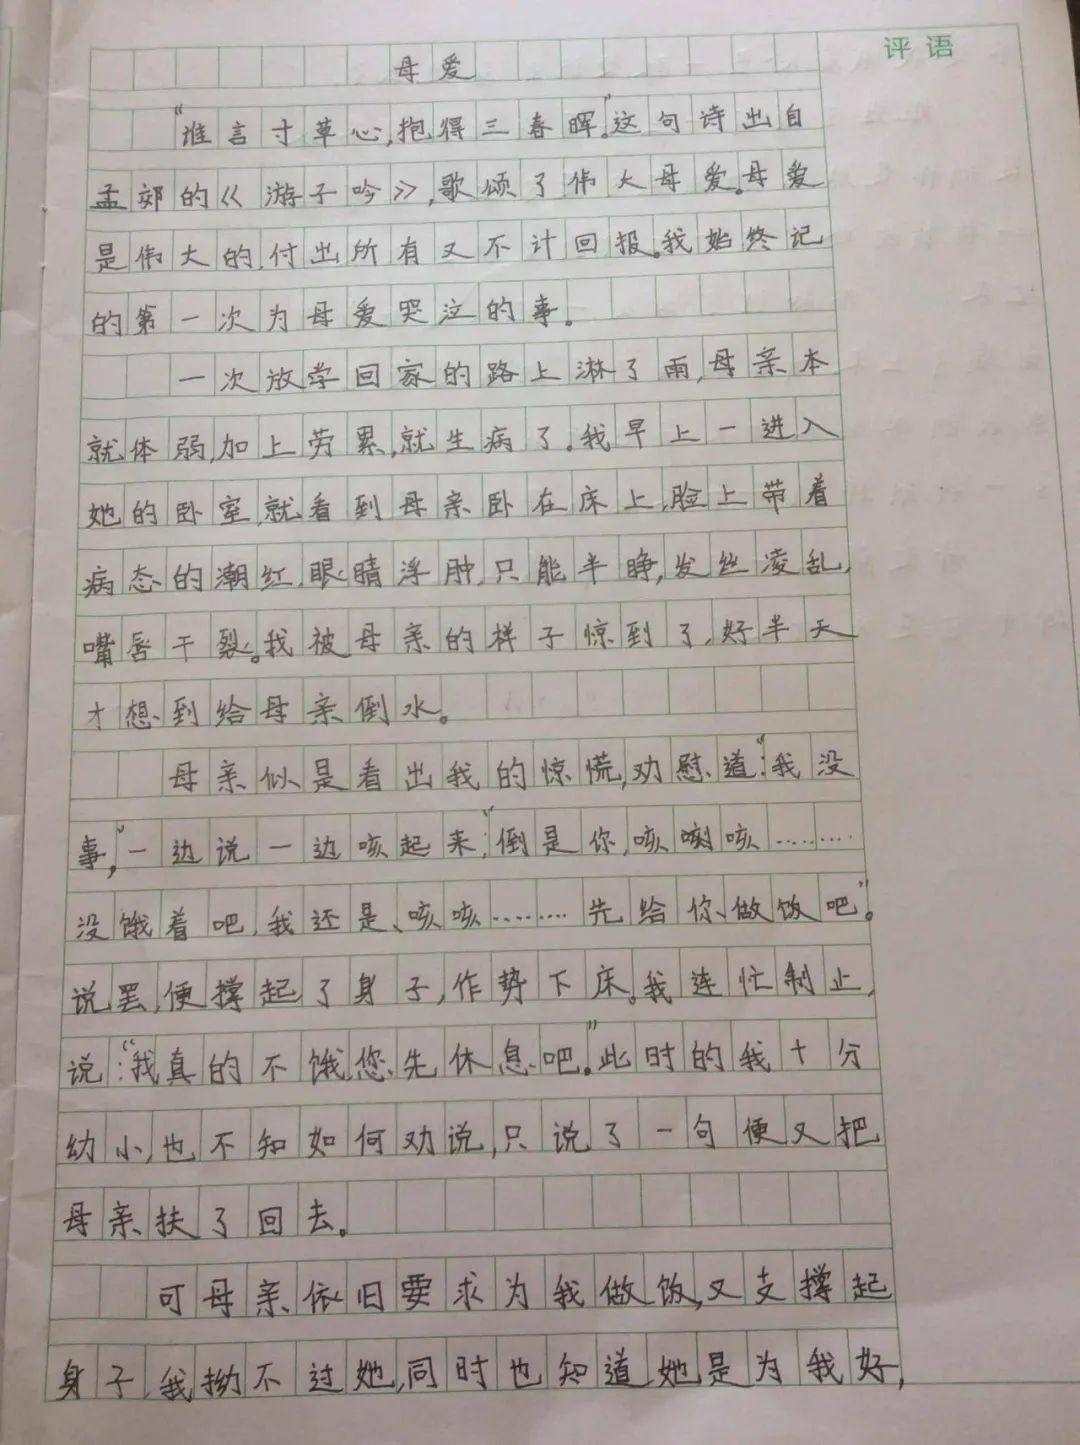 评语
母爱
“谁言寸草心,抱得三春晖。”这句诗出自
孟郊的《游子吟》,歌颂了伟大母爱。母爱
是伟大的,付出所有又不计回报。我始终记
的第一次为母爱哭泣的事。
一次放学回家的路上淋了雨,母亲本
就体弱,加上劳累,就生病了。我早上一进入
她的卧室,就看到母亲卧在床上,脸上带着
病态的潮红,眼睛浮肿,只能半睁,发丝凌乱,
嘴唇干裂。我被母亲的样子惊到了,好半天
才想到给母亲倒水。
母亲似是看出我的惊慌,劝慰道:“我没
事,”一边说一边咳起来,“倒是你,咳咳咳………
没饿着吧,我还是、咳咳………先给你做饭吧”。
说罢,便撑起了身子,作势下床。我连忙制止,
说:“我真的不饿,您先休息吧。”此时的我十分
幼小,也不知如何劝说,只说了一句便又把
母亲扶了回去。
可母亲依旧要求为我做饭,又支撑起
身子,我拗不过她,同时也知道她是为我好,